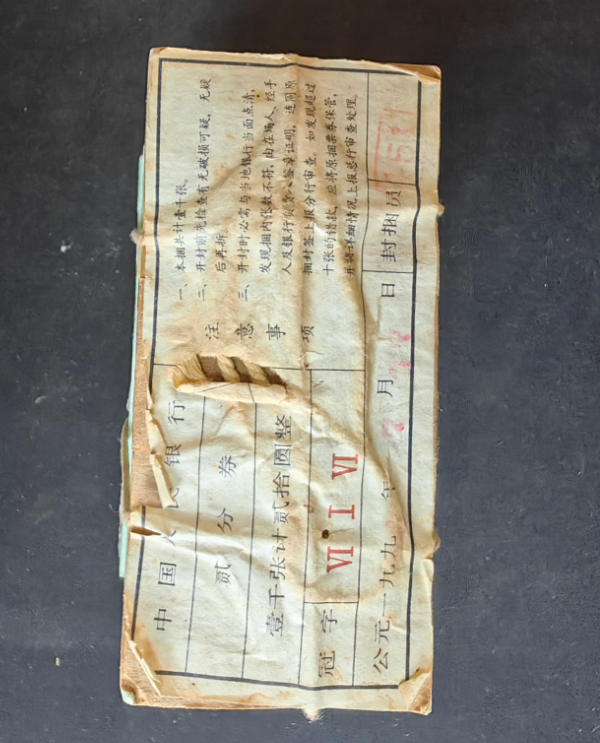 中国人民银行
贰分券
壹千张计贰拾圆整
冠字 VI I VI
公元一九九 年 月 日 封捆员
注意事项
一、本捆共计壹千张。
二、开封前先检查有无破损可疑，无疑
后再拆。
三、开封时必需与当地银行当面点清，
发现捆内张数不符，由在场人、经手
人及银行负责人签章证明，连同原
捆封签上报分行审查，如发现超过
十张的错款，应将原捆票券保管，
并将详细情况上报总行审查处理。